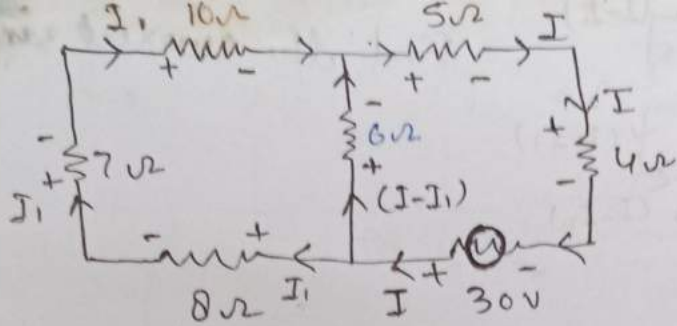 I₁ 10Ω 5Ω I
+ - + -
- I
- 6Ω +
+ 7Ω + 4Ω
I₁ (I-I₁) -
- + + -
8Ω I₁ I 30V